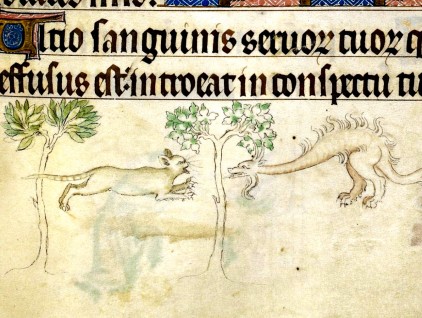 ltio sanguinis seruoꝝ tuoꝝ q
effusus est: introeat in conspectu tu